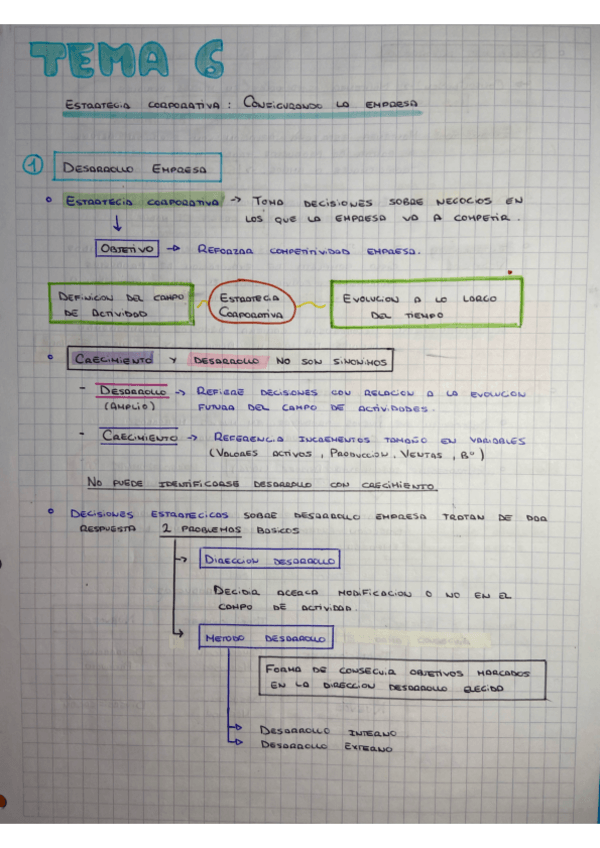 TEMA 6
ESTRATEGIA CORPORATIVA : CONFIGURANDO LA EMPRESA
1 DESARROLLO EMPRESA
ESTRATEGIA CORPORATIVA → TOMA DECISIONES SOBRE NEGOCIOS EN
LOS QUE LA EMPRESA VA A COMPETIR.
OBJETIVO → REFORZAR COMPETITIVIDAD EMPRESA.
DEFINICION DEL CAMPO
DE ACTIVIDAD
ESTRATEGIA
CORPORATIVA
EVOLUCION A LO LARGO
DEL TIEMPO
CRECIMIENTO Y DESARROLLO NO SON SINONIMOS
- DESARROLLO → REFIERE DECISIONES CON RELACION A LA EVOLUCION
(AMPLIO) FUTURA DEL CAMPO DE ACTIVIDADES.
- CRECIMIENTO → REFERENCIA INCREMENTOS TAMAÑO EN VARIABLES
(VALORES ACTIVOS, PRODUCCION, VENTAS, Bº)
NO PUEDE IDENTIFICARSE DESARROLLO CON CRECIMIENTO
DECISIONES ESTRATEGICAS SOBRE DESARROLLO EMPRESA TRATAN DE DAR
RESPUESTA 2 PROBLEMAS BASICOS
→ DIRECCION DESARROLLO
DECIDIR ACERCA MODIFICACION O NO EN EL
CAMPO DE ACTIVIDAD.
→ METODO DESARROLLO
FORMA DE CONSEGUIR OBJETIVOS MARCADOS
EN LA DIRECCION DESARROLLO ELEGIDA
→ DESARROLLO INTERNO
→ DESARROLLO EXTERNO